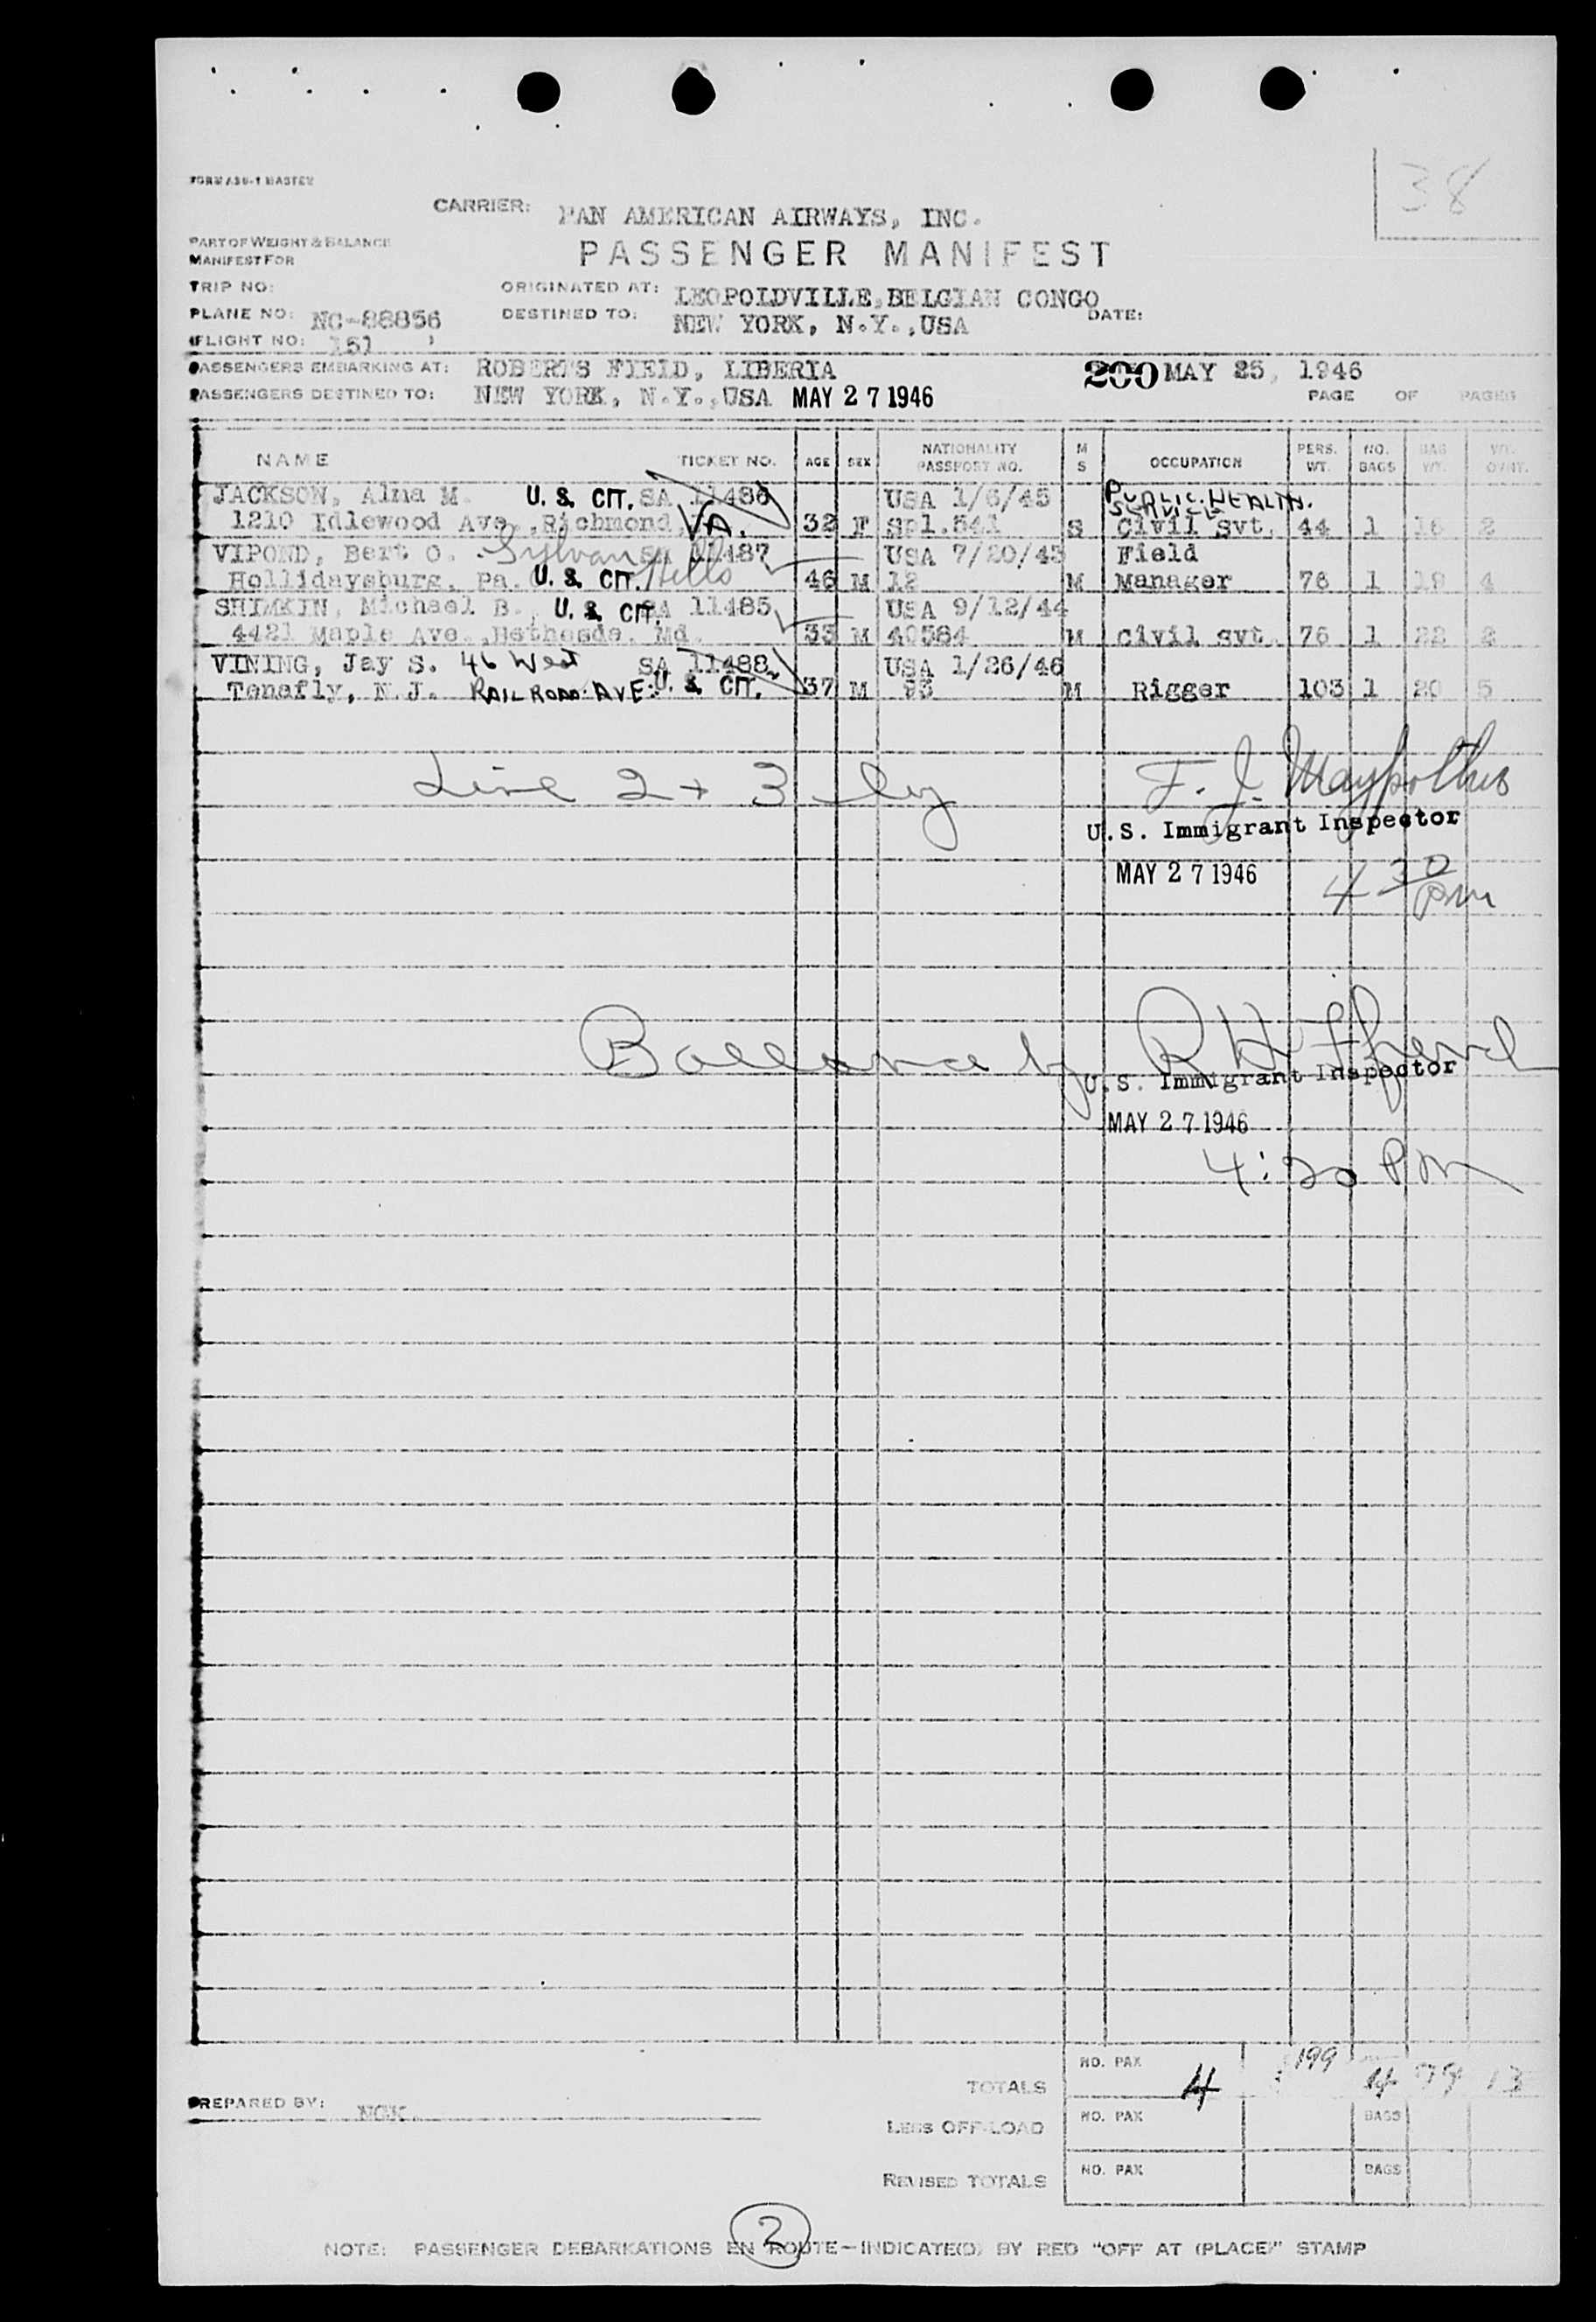 38
FORM A30-1 MASTER
CARRIER: PAN AMERICAN AIRWAYS, INC.
PART OF WEIGHT & BALANCE
MANIFEST FOR
PASSENGER MANIFEST
TRIP NO:
ORIGINATED AT: LEOPOLDVILLE, BELGIAN CONGO
PLANE NO: NC-88856
DESTINED TO: NEW YORK, N.Y., USA DATE:
FLIGHT NO: 151
PASSENGERS EMBARKING AT: ROBERTS FIELD, LIBERIA 200 MAY 25, 1946
PASSENGERS DESTINED TO: NEW YORK, N.Y., USA MAY 27 1946 PAGE OF PAGES
NAME TICKET NO. AGE SEX NATIONALITY PASSPORT NO. M S OCCUPATION PERS. WT. NO. BAGS BAG WT.
JACKSON, Alna M. U. S. CIT. SA 11486 USA 1/6/45 PUBLIC HEALTH SERVICE
1210 Idlewood Ave., Richmond, VA. 32 F Spl.541 S Civil Svt. 44 1 16 2
VIPOND, Bert O. Sylvan Hills SA 11487 USA 7/20/45 Field
Hollidaysburg, Pa. U. S. CIT. 46 M 12 M Manager 76 1 19 4
SHIMKIN, Michael B. U. S. CIT. SA 11485 USA 9/12/44
4421 Maple Ave., Bethesda, Md. 33 M 40584 M Civil Svt. 76 1 22 2
VINING, Jay S. 46 West SA 11488 USA 1/26/46
Tenafly, N.J. RAILROAD AVE. U. S. CIT. 37 M 93 M Rigger 103 1 20 5
Line 2 + 3 by F. J.
U.S. Immigrant Inspector
MAY 27 1946 4 30 PM
by R H
U.S. Immigrant Inspector
MAY 27 1946
4:20 PM
TOTALS NO. PAX 4 4 13
PREPARED BY: NGK
LESS OFF-LOAD NO. PAX BAGS
REVISED TOTALS NO. PAX BAGS
2
NOTE: PASSENGER DEBARKATIONS EN ROUTE—INDICATE(D) BY RED "OFF AT (PLACE)" STAMP